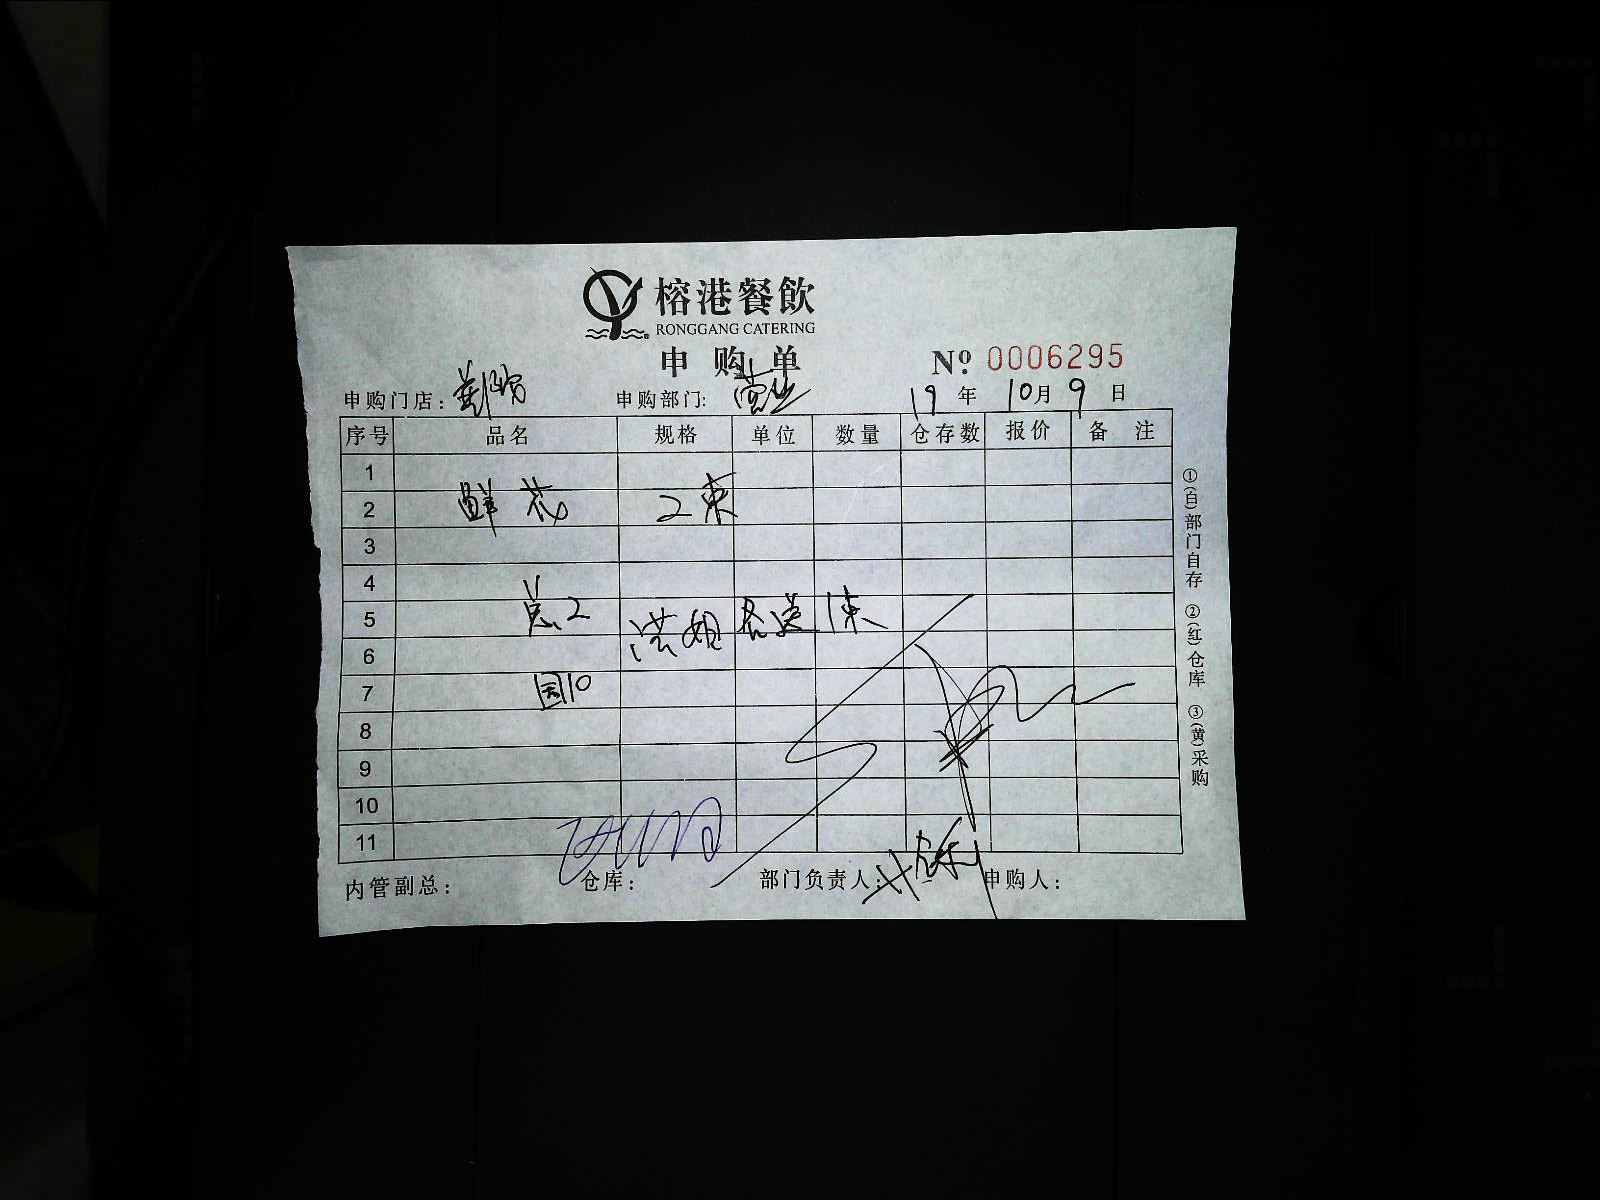 榕港餐飲
RONGGANG CATERING
申购单
Nº 0006295
申购门店: 申购部门: 营业 19年10月9日
序号 品名 规格 单位 数量 仓存数 报价 备注
1
2 鲜花 2束
3
4
5 总2 洪姐客送1束
6
7 国10
8
9
10
11
内管副总: 仓库: 部门负责人: 申购人:
①(白)部门自存 ②(红)仓库 ③(黄)采购